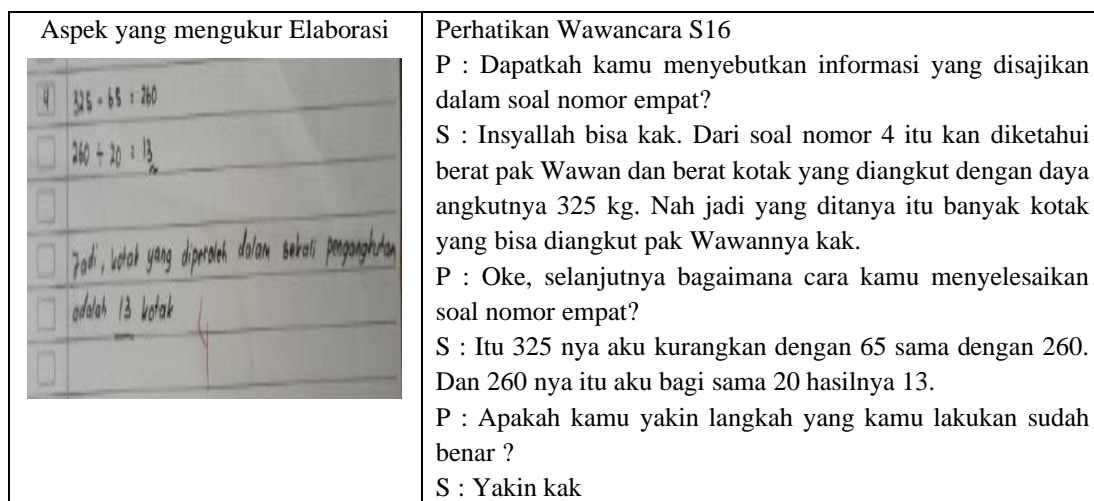 Aspek yang mengukur Elaborasi
4 325 - 65 = 260
260 ÷ 20 = 13
Jadi, kotak yang diperoleh dalam sekali pengangkutan
adalah 13 kotak
Perhatikan Wawancara S16
P : Dapatkah kamu menyebutkan informasi yang disajikan
dalam soal nomor empat?
S : Insyallah bisa kak. Dari soal nomor 4 itu kan diketahui
berat pak Wawan dan berat kotak yang diangkut dengan daya
angkutnya 325 kg. Nah jadi yang ditanya itu banyak kotak
yang bisa diangkut pak Wawannya kak.
P : Oke, selanjutnya bagaimana cara kamu menyelesaikan
soal nomor empat?
S : Itu 325 nya aku kurangkan dengan 65 sama dengan 260.
Dan 260 nya itu aku bagi sama 20 hasilnya 13.
P : Apakah kamu yakin langkah yang kamu lakukan sudah
benar ?
S : Yakin kak